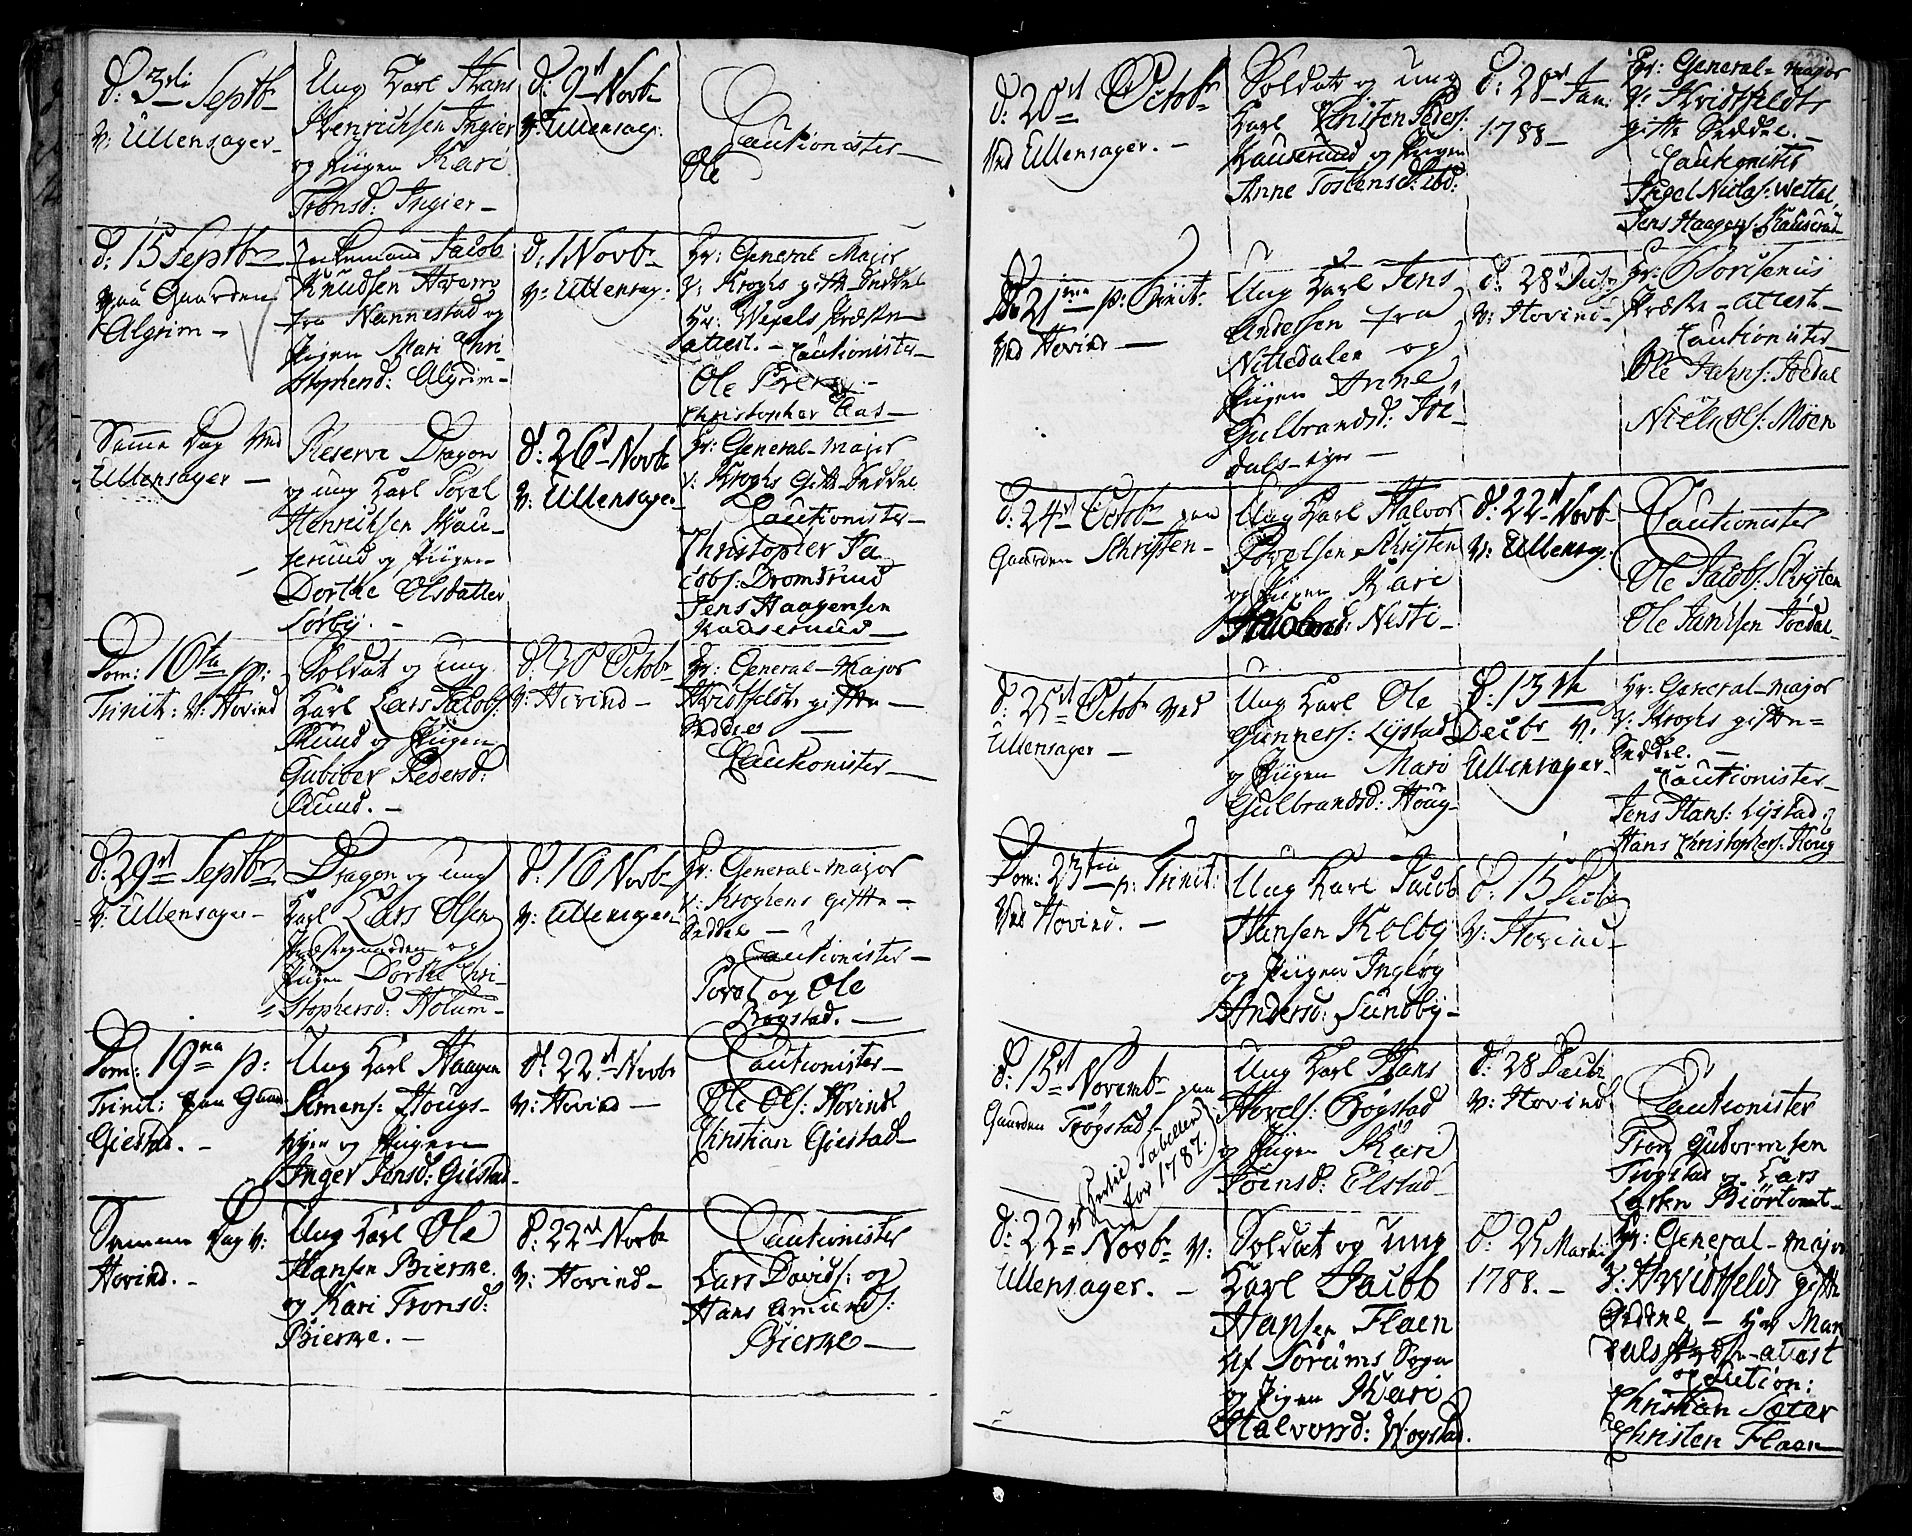 D: 3die Septbr
V: Ullensager
Ung Karl Hans
Henrichsen Ingier
og Piigen Kari
Tronsd: Ingier
D: 9d Novbr
V: Ullensag:
Cautionister
Ole
D: 15 Septbr
paa Gaarden
Algrim
Enkemand Jacob
Knudsen
fra Nannestad og
Pigen Mari Chri-
stophersd: Algrim
D: 1 Novbr
V: Ullensag:
Hr: General Major
V: Kroghs gifte Seddel
Hr: Wexels Præste
attest. - Cautionister
Ole
Christopher Aas
Samme Dag Ved
Ullensager
Reserve Dragon
og ung Karl Povel
Henrichsen Kau-
serund og Piigen
Dorthe Olsdatter
Sørby.
D: 26d Novbr
V: Ullensager
Hr: General-Major
V: Kroghs Gifte Seddel
Cautionister
Christopher Ja
cobs: Dromsrud
Jens Haagensen
Kauserund
Dom: 16ta p:
Trinit: V: Hovind
Soldat og ung
Karl Lars Jacobs:
Rund og Piigen
Gubiver Pedersd:
Rund.
Octobr
V: Hovind
Hr: General-Major
Hvidtfeldts gifte
Seddel
Cautionister
D: 29de Septbr
V: Ullensager
Dragon og ung
Karl Lars Olsen
Præstegaarden og
Piigen Dorthe Chri-
stophersd: Holum
D: 16 Novbr
V: Ullensager
Hr: General-Major
V: Kroghens gifte
Seddel
Cautionister
Povel og Ole
Bogstad.
Dom: 19na p:
Trinit: paa Gaard
Giestad.
Ung Karl Haagen
Simens: Hougs-
eier og Piigen
Inger Jensd: Giestad
D: 22d Novbr
V: Hovind
Cautionister
Ole Ols: Hovind
Christian Giestad
Samme Dag V:
Hovind.
Ung Karl Ole
Hansen Bierke
og Kari Tronsd:
Bierke.
D: 22d Novbr
V: Hovind
Cautionister
Lars Davids: og
Hans Amunds:
Bierke
D: 20d Octobr
Ved Ullensager.
Soldat og ung
Karl Christen Peders:
Kauserund og Piigen
Anne Tostensd: ibd:
D: 28de Jan:
1788
Hr: General-Major
V: Hvidtfeldts
gifte Seddel.
Cautionister
Engel Niclas: Wettal,
Jens Haagens: Kauserud
D: 21ma p: Trinit:
Ved Hovind
Ung Karl Jens
Andersen fra
Nittedalen og
Piigen Anne
Gulbrandsd: Joe-
dals-eger
D: 28d Decbr
V: Hovind
Hr:
Præste-attest
Cautionister
Ole Jahns: Joedal
Niels Ols: Moen
D: 24d Octobr paa
Gaarden Schristen
Ung Karl Halvor
Povelsen Schristen
og Piigen Kari
Nesti
D: 22d Novbr
V: Ullensag:
Cautionister
Ole Jacobs:
Ole Jandsen Joedal
D: 25d Octobr Ved
Ullensager
Ung Karl Ole
Gunners: Lystad
og Piigen Mari
Gulbrandsd: Houg
D: 13de
Decbr V.
Ullensager
Hr: General-Major
V. Kroghs gifte
Seddel.
Cautionister
Jens Hans: Lystad og
Hans Christophers: Houg
Dom: 23tia p: Trinit:
Ved Hovind.
Ung Karl Jacob
Hansen Kolby
og Piigen Ingebrg
Andersd: Sundby
D: 15 Decbr
V: Hovind
D: 15d Novembr paa
Gaarden Trøgstad
Tabeller
for 1787.
Ung Karl Hans
Hovels: Bøgstad
og Piigen Kari
Toensd: Elstad
D: 28 Decbr
V: Hovind
Cautionister
Tron Gudormsen
Trøgstad og Lars
Larsen
D: 22de Novbr V:
Ullensager.
Soldat og ung
Karl Jacob
Hansen Flaen
af Sørums Sogn
og Piigen Kari
Halvorsd: Wogstad.
D: 25 Martii
1788.
Hr: General-Major
V. Hwidtfelds gifte
Seddel - Hr Man
dals Præste-attest
og Cution:
Christian Sæter
Christen Flaen